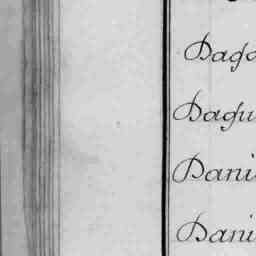 Dago
Dagu
Dani
Dani